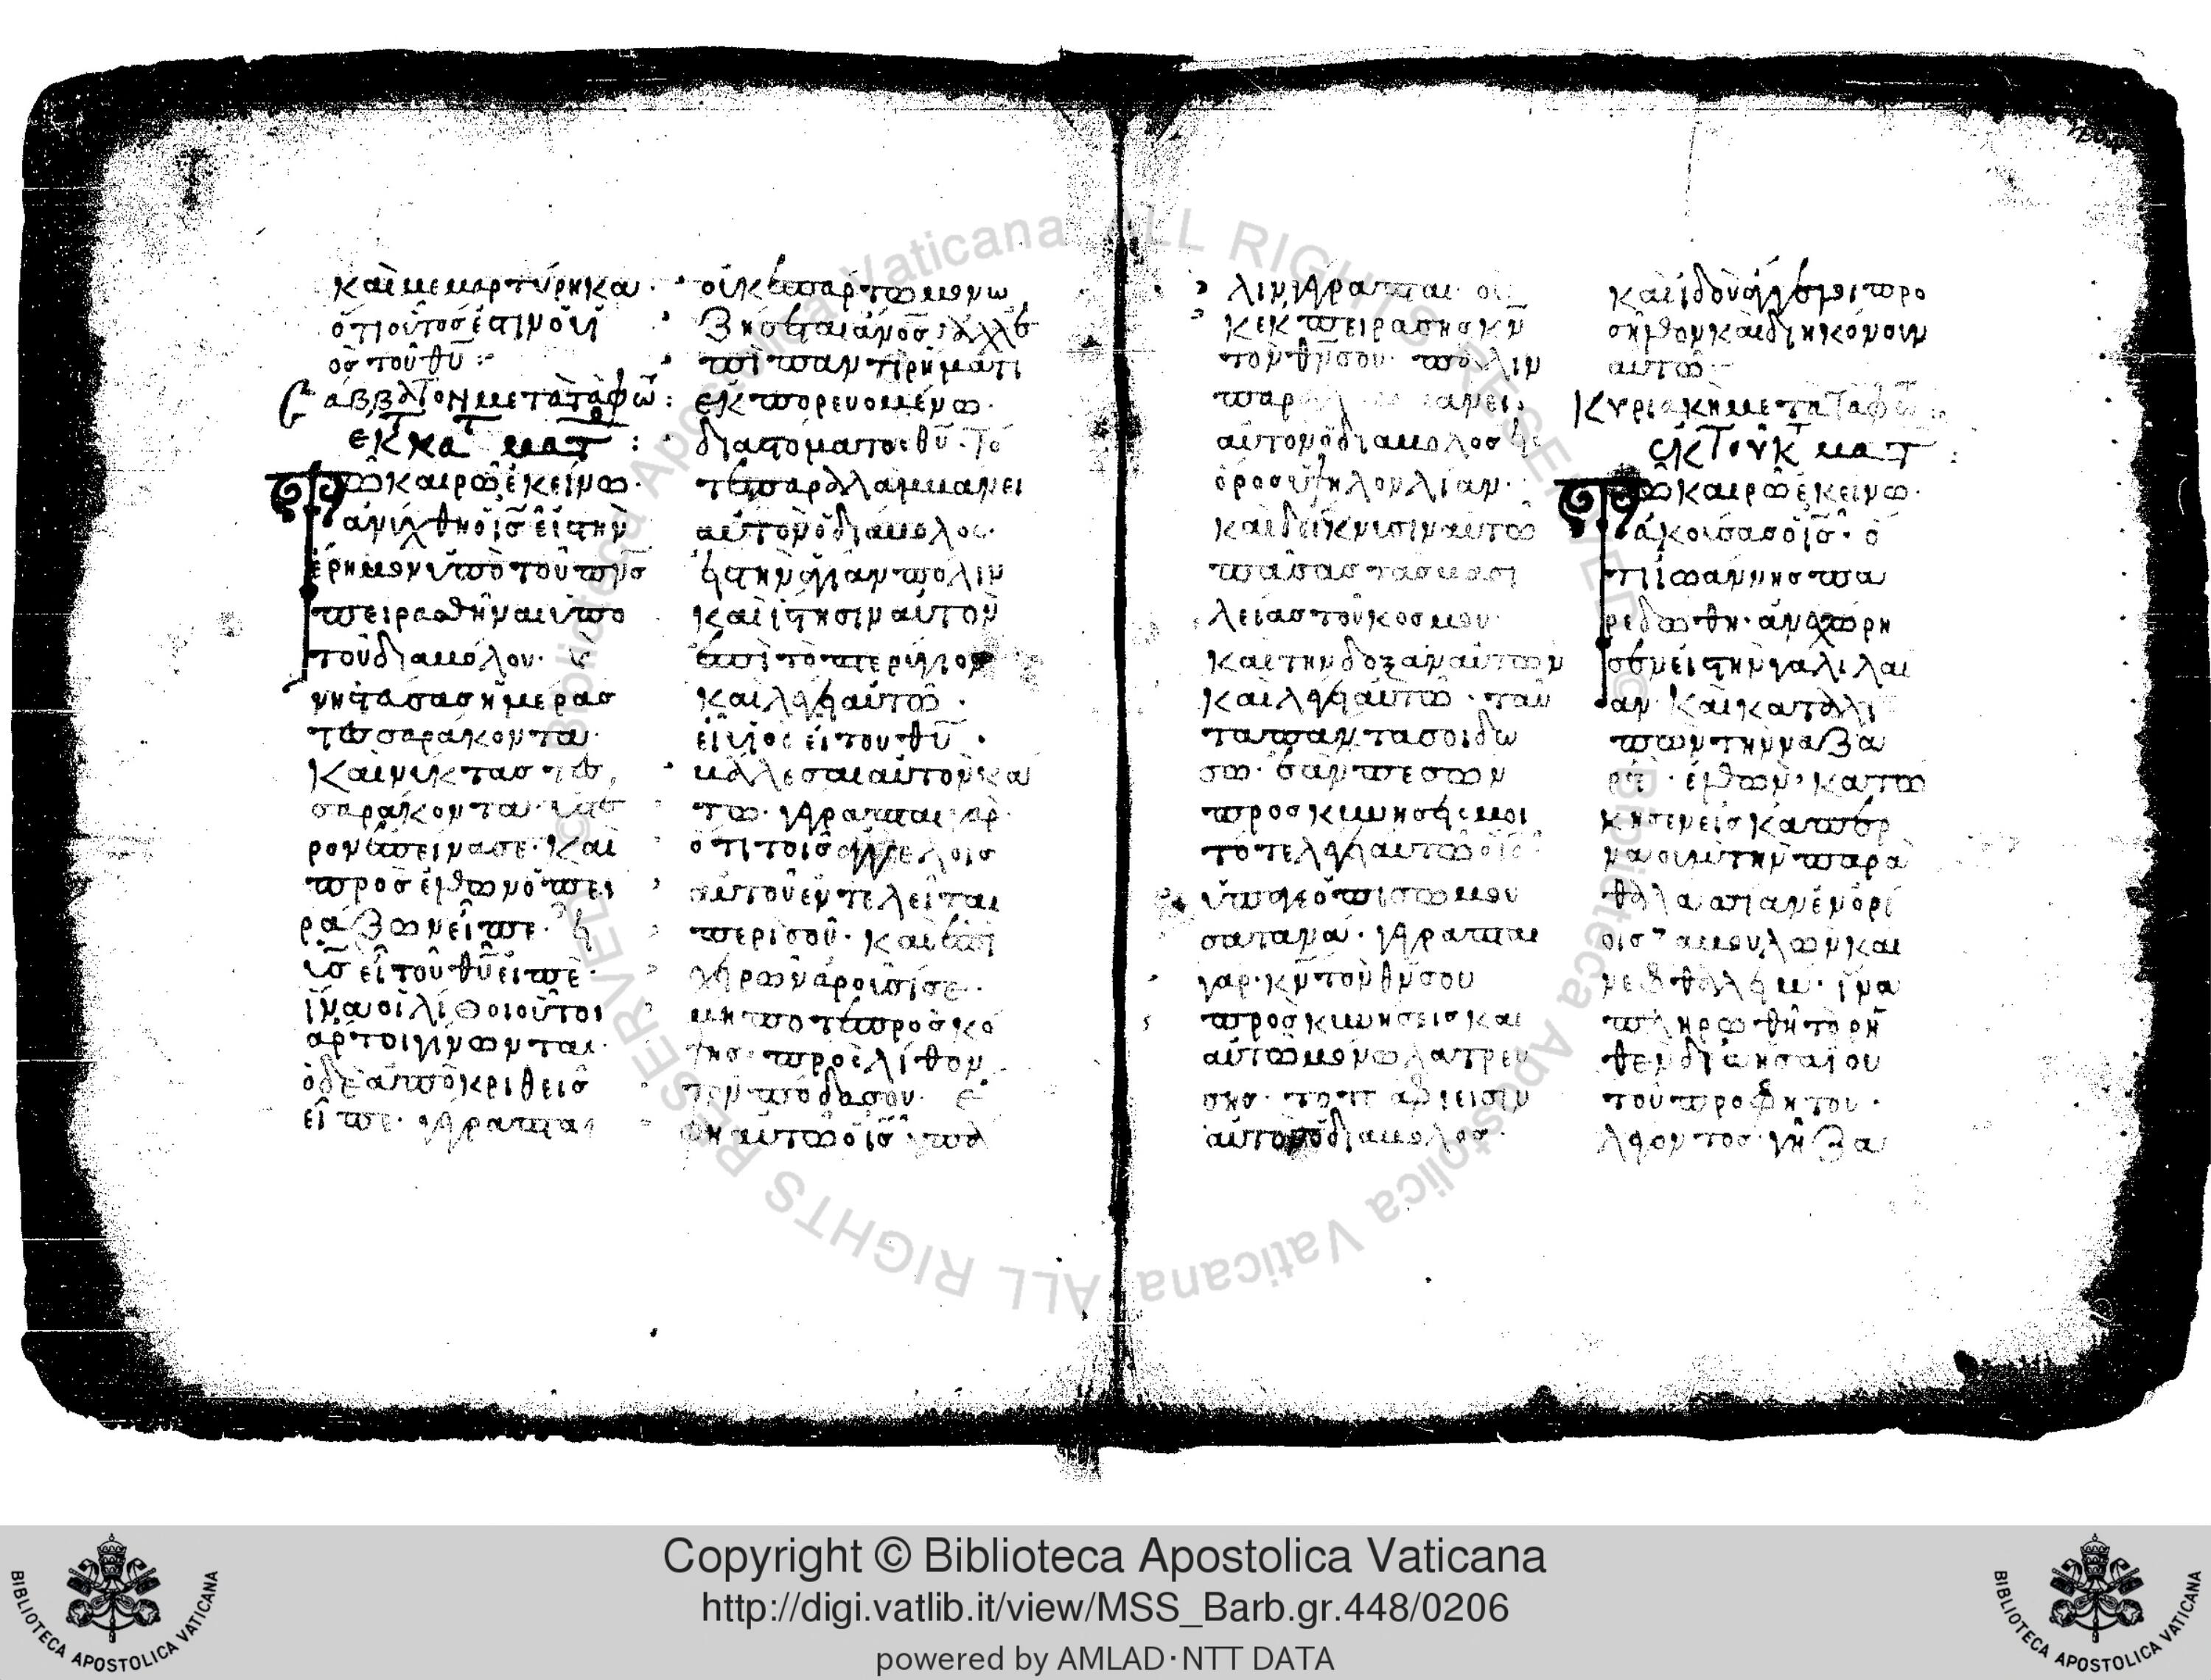 καὶ μεμαρτύρηκα·
ὅτι οὗτός ἐστιν ὁ υἱ
ὸς τοῦ θυ
σαββατον μετα τὰ φῶ:
ἐκ κα ματ:
Τῶ καιρῶ ἐκείνω·
ἀνίχθη ὁ ις εἰς την
ἔρημον ὑπὸ τοῦ πνς
πειρασθῆναι ὑπο
τοῦ διαβόλου·
νηστασας ἡμέρας
τεσσαράκοντα·
Καὶ νύκτας τεσ
σαράκοντα ὑστε
ρον ἐπείνασε· Και
προσελθων ὁ πει
ράζων εἶπε·
υς εἶ τοῦ θυ εἰπὲ·
ἵνα οἱ λίθοι οὗτοι
ἄρτοι γίνωνται·
ὁδὲ ἀποκριθεις
εἶπε· γέγραπται
οὐκ ἐπ ἄρτω μόνω
ζήσεται ἄνος ἀλλ ἐ
πὶ παντὶ ρήματι
ἐκπορευομένω·
διαστόματος θυ· Τό
τε παραλαμβάνει
αὐτὸν ὁ διάβολος·
εἰς τὴν ἁγίαν πόλιν
καὶ ἵστησιν αὐτὸν
ἐπὶ τὸ πτερύγιον
καὶ λέγει αὐτῶ·
εἰ υἱὸς εἶ του θυ·
βάλε σεαυτὸν κα
τω· γέγραπται γὰρ·
ὅτι τοῖς ἀγγέλοις
αὐτοῦ ἐντελεῖται
περὶ σοῦ· καὶ ἐπὶ
χειρῶν ἀροῦσί σε·
μήποτε προσκό
ψης προς λίθον
τὸν πόδα σου·
φη αὐτῶ ὁ ις πα
λιν γέγραπται οὐ
κ ἐκπειράσης κν
τον θν σου· πάλιν
παραλαμβάνει
αὐτον ὁ διαβολος εἰς
ὄρος ὑψηλον λίαν·
καὶ δείκνυσιν αὐτῶ
πάσας τας βασι
λείας τοῦ κόσμου·
Και την δοξαν αὐτῶν
Καὶ λέγει αὐτῶ· ταυ
τα πάντα σοι δω
σω· ἐὰν πεσων
προσκυνήσης μοι
τότε λέγει αυτῶ ὁ ις
ὕπαγε ὀπίσω μου
σατανᾶ· γέγραπται
γαρ· κν τὸν θν σου
προσκυνήσεις και
αὐτῶ μόνω λατρευ
σης· τοτε ἀφίεισιν
αὐτον ὁ διαβολος·
καὶ ἰδοὺ ἄγγελοι προ
σῆλθον καὶ διηκόνουν
αυτῶ
Κυριακη μετα τα φω
ἐκ τοῦ κ ματ:
Τῶ καιρῶ ἐκείνω·
ἀκούσας ὁ ις· ὁ
τι ιωάννης πα
ρεδόθη· ἀνεχώρη
σεν εἰς τὴν γαλιλαι
αν· Καὶ καταλι
πὼν τὴν ναζα
ρετ· ἐλθὼν κατω
κησεν εἰς καπερ
ναοὺμ τὴν παρα
θαλασσίαν ἐν ὁρί
οις ζαβουλων και
νεφθαλειμ· ἵνα
πληρωθῆ τὸ ρη
θεν διὰ ησαΐου
τοῦ προφήτου·
λέγοντος γῆ ζα
Copyright © Biblioteca Apostolica Vaticana
http://digi.vatlib.it/view/MSS_Barb.gr.448/0206
powered by AMLAD·NTT DATA